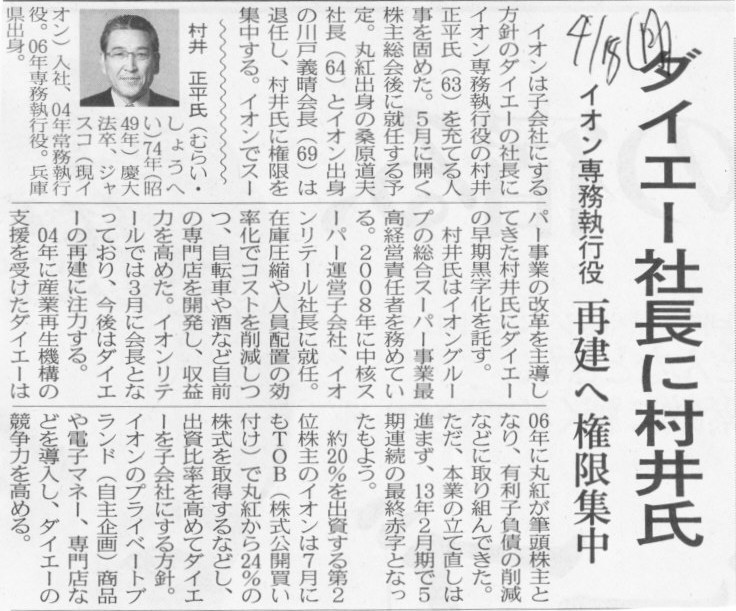 4/18
ダイエー社長に村井氏
イオン専務執行役
再建へ権限集中
イオンは子会社にする
方針のダイエーの社長に
イオン専務執行役の村井
正平氏(63)を充てる人
事を固めた。5月に開く
株主総会後に就任する予
定。丸紅出身の桑原道夫
社長(64)とイオン出身
の川戸義晴会長(69)は
退任し、村井氏に権限を
集中する。イオンでスー
パー事業の改革を主導し
てきた村井氏にダイエー
の早期黒字化を託す。
村井氏はイオングルー
プの総合スーパー事業最
高経営責任者を務めてい
る。2008年に中核ス
ーパー運営子会社、イオ
ンリテール社長に就任。
在庫圧縮や人員配置の効
率化でコストを削減しつ
つ、自転車や酒など自前
の専門店を開発し、収益
力を高めた。イオンリテ
ールでは3月に会長とな
っており、今後はダイエ
ーの再建に注力する。
04年に産業再生機構の
支援を受けたダイエーは
06年に丸紅が筆頭株主と
なり、有利子負債の削減
などに取り組んできた。
ただ、本業の立て直しは
進まず、13年2月期で5
期連続の最終赤字となっ
たもよう。
約20%を出資する第2
位株主のイオンは7月に
もTOB(株式公開買い
付け)で丸紅から24%の
株式を取得するなどし、
出資比率を高めてダイエ
ーを子会社にする方針。
イオンのプライベートブ
ランド(自主企画)商品
や電子マネー、専門店な
どを導入し、ダイエーの
競争力を高める。
村井 正平氏(むらい・
しょうへ
い)74年(昭
49年)慶大
法卒、ジャ
スコ(現イ
オン)入社、04年常務執行
役。06年専務執行役。兵庫
県出身。